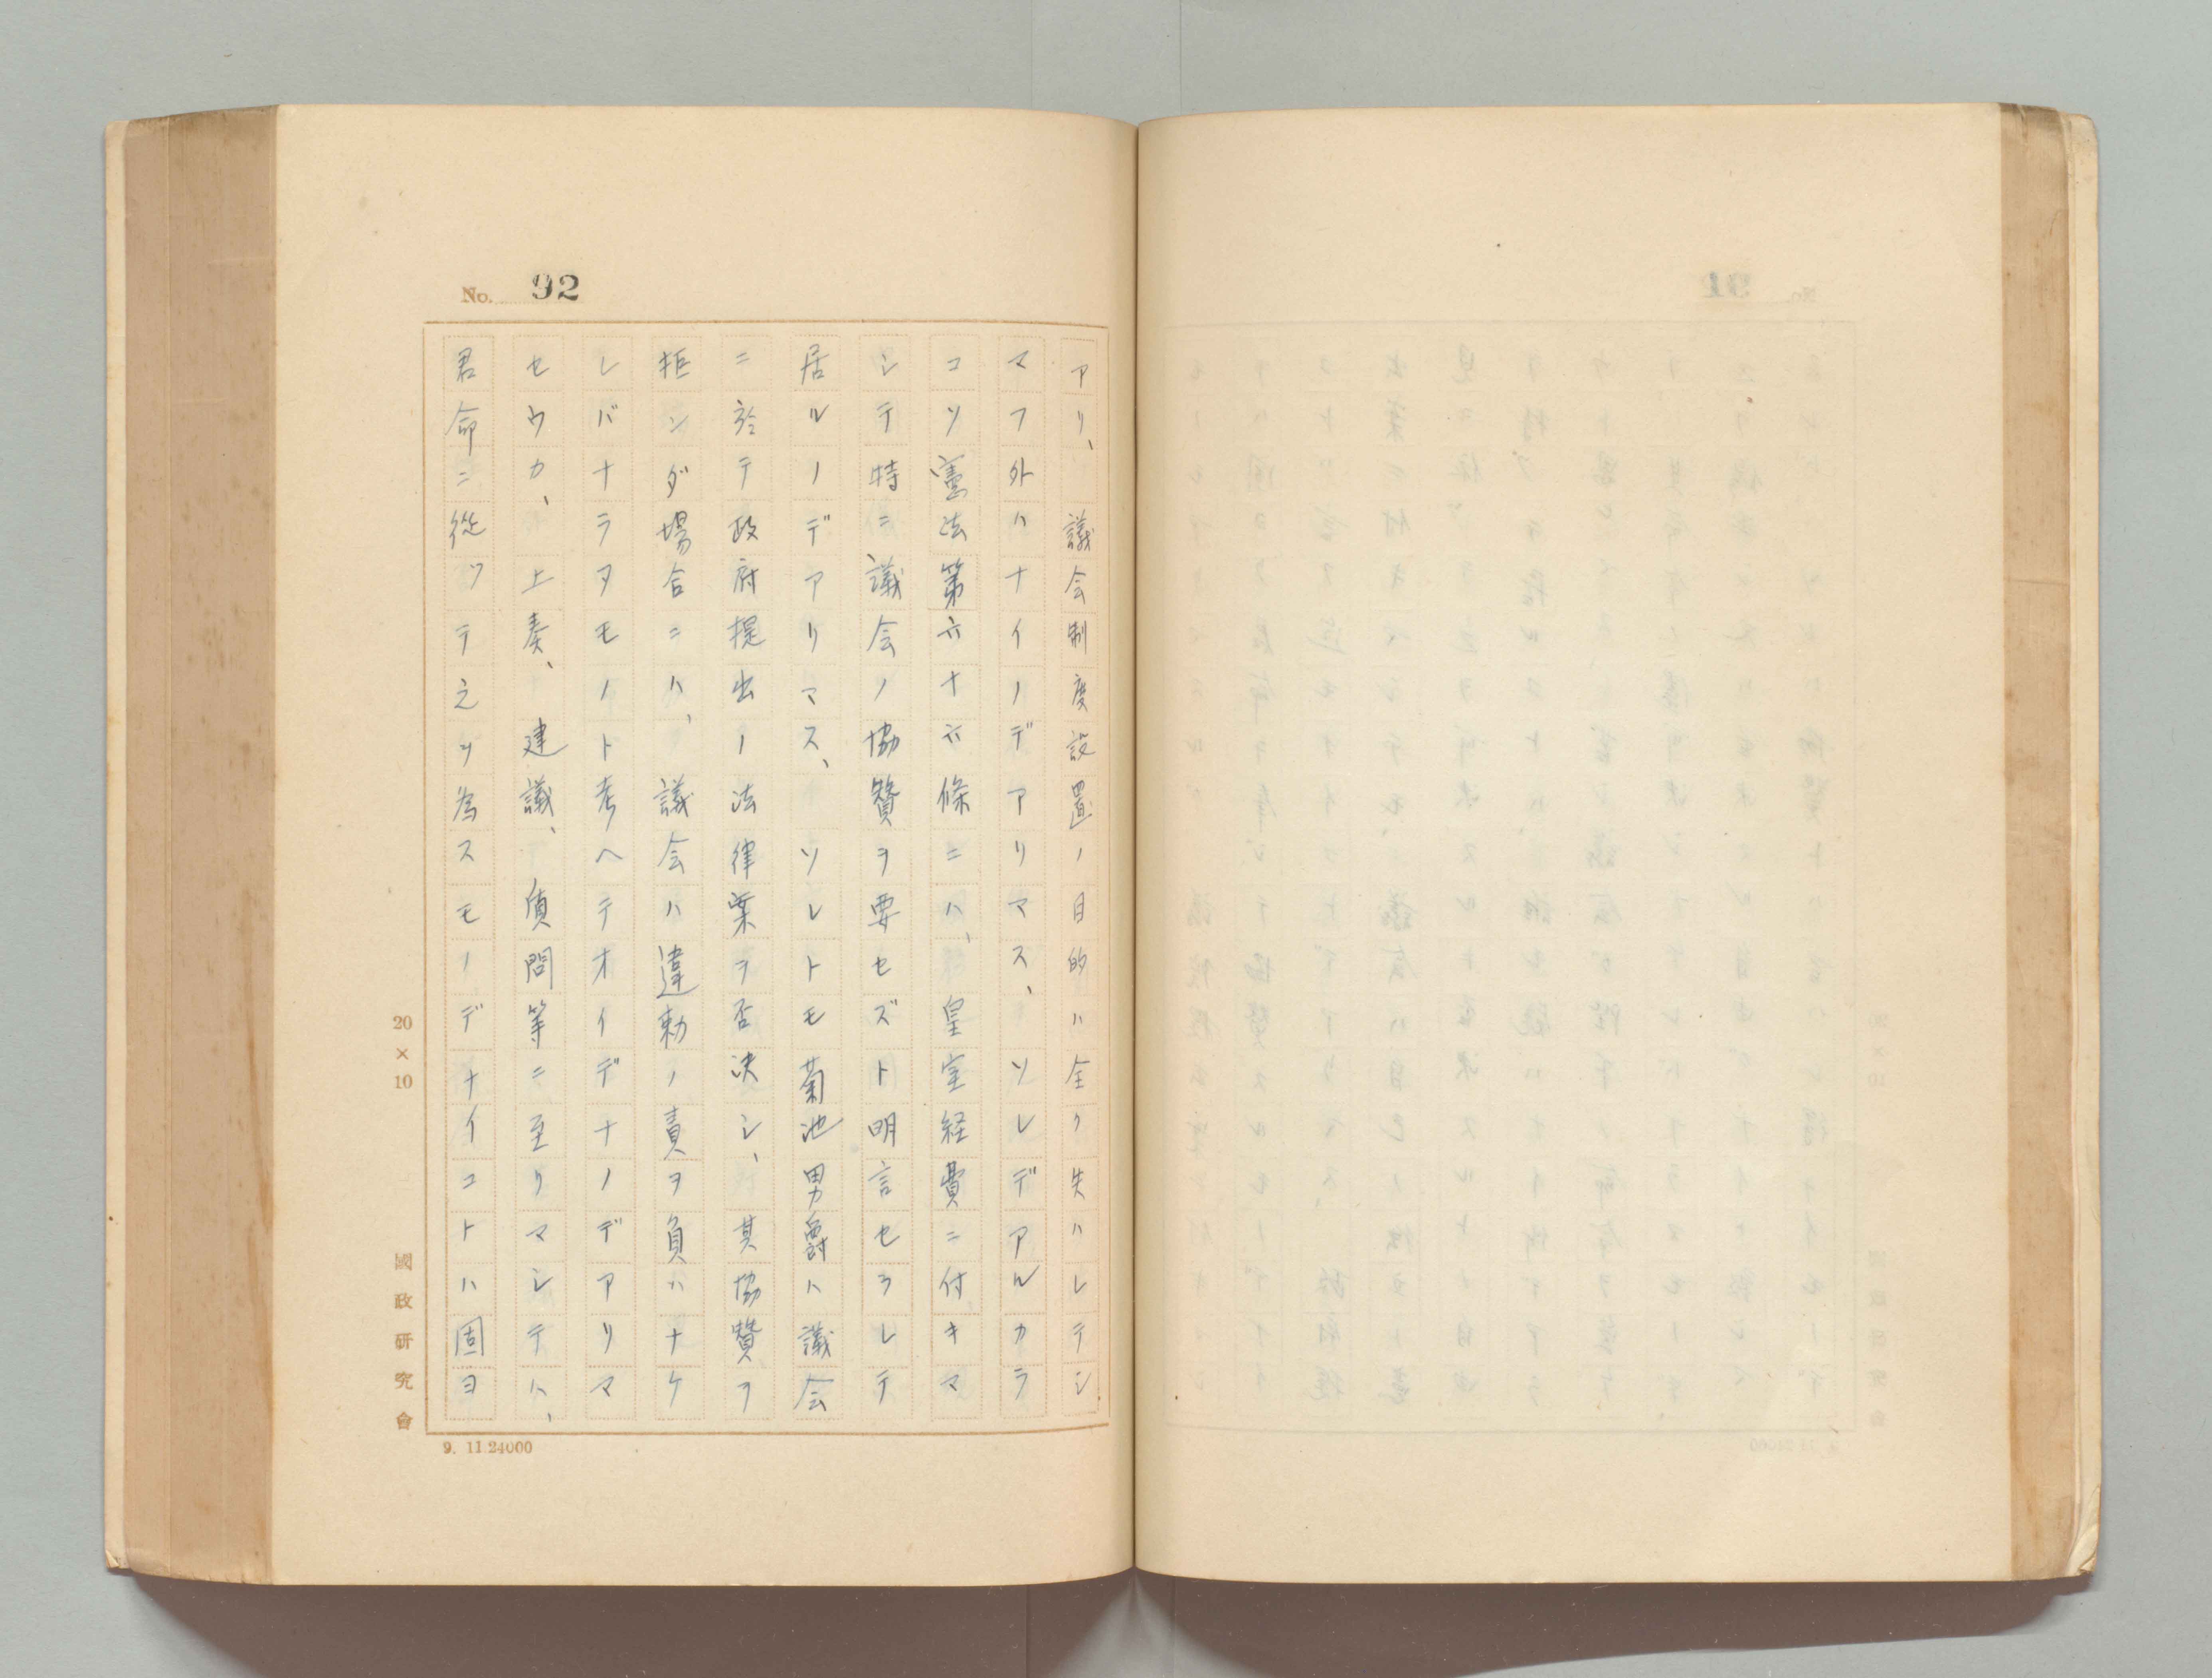 No. 92
アリ、議会制度設置ノ目的ハ全ク失ハレテシ
マフ外ハナイノデアリマス、ソレデアルカラ
コソ憲法第六十六條ニハ、皇室経費ニ付キマ
シテ特ニ議会ノ協賛ヲ要セズト明言セラレテ
居ルノデアリマス、ソレトモ菊池男爵ハ議会
ニ於テ政府提出ノ法律案ヲ否決シ、其協賛ヲ
拒ンダ場合ニハ、議会ハ違勅ノ責ヲ負ハナケ
レバナラヌモノト考ヘテオイデナノデアリマ
セウカ、上奏、建議、質問等ニ至リマシテハ、
君命ニ従ツテ之ヲ為スモノデナイコトハ固ヨ
20×10
國政研究會
9. 11.24000